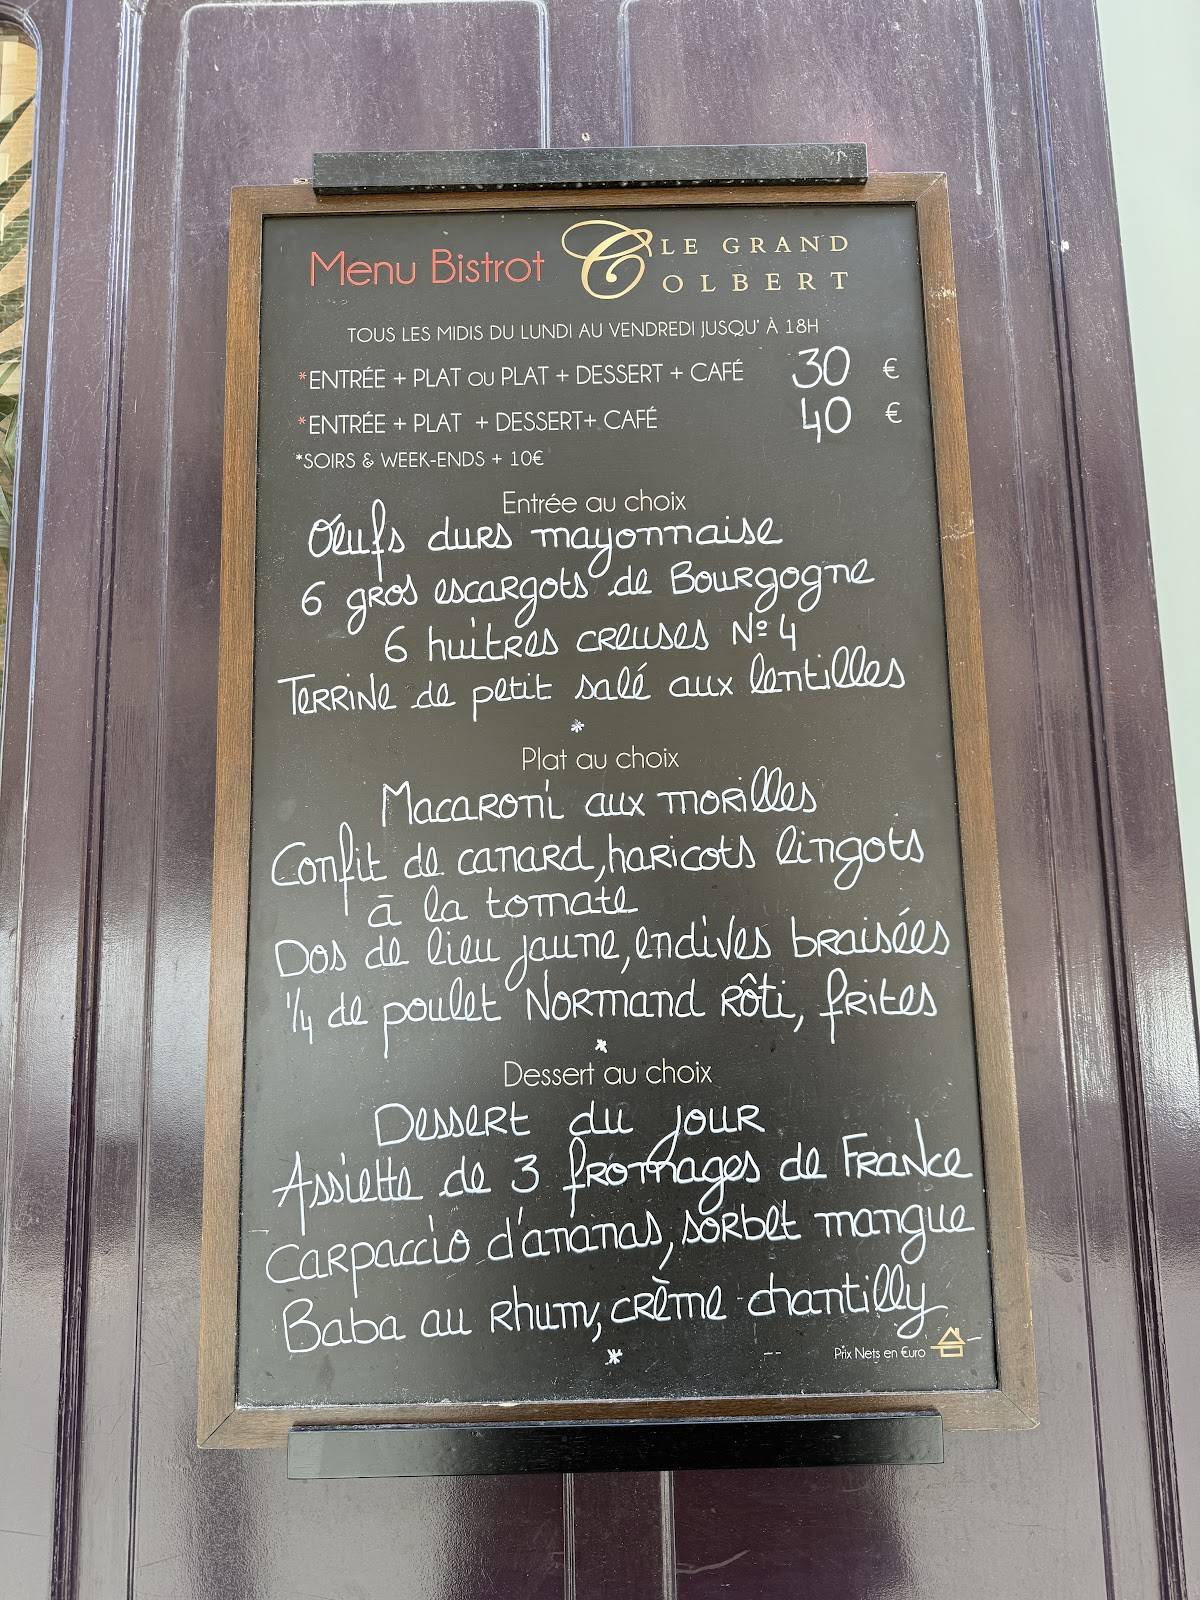 Menu Bistrot LE GRAND COLBERT
TOUS LES MIDIS DU LUNDI AU VENDREDI JUSQU' À 18H
*ENTRÉE + PLAT OU PLAT + DESSERT + CAFÉ 30 €
*ENTRÉE + PLAT + DESSERT+ CAFÉ 40 €
*SOIRS & WEEK-ENDS + 10€
Entrée au choix
Œufs durs mayonnaise
6 gros escargots de Bourgogne
6 huitres creuses Nº 4
Terrine de petit salé aux lentilles
*
Plat au choix
Macaroni aux morilles
Confit de canard, haricots lingots
à la tomate
Dos de lieu jaune, endives braisées
1/4 de poulet Normand rôti, frites
*
Dessert au choix
Dessert du jour
Assiette de 3 fromages de France
Carpaccio d'ananas, sorbet mangue
Baba au rhum, crème chantilly
*
Prix Nets en €uro